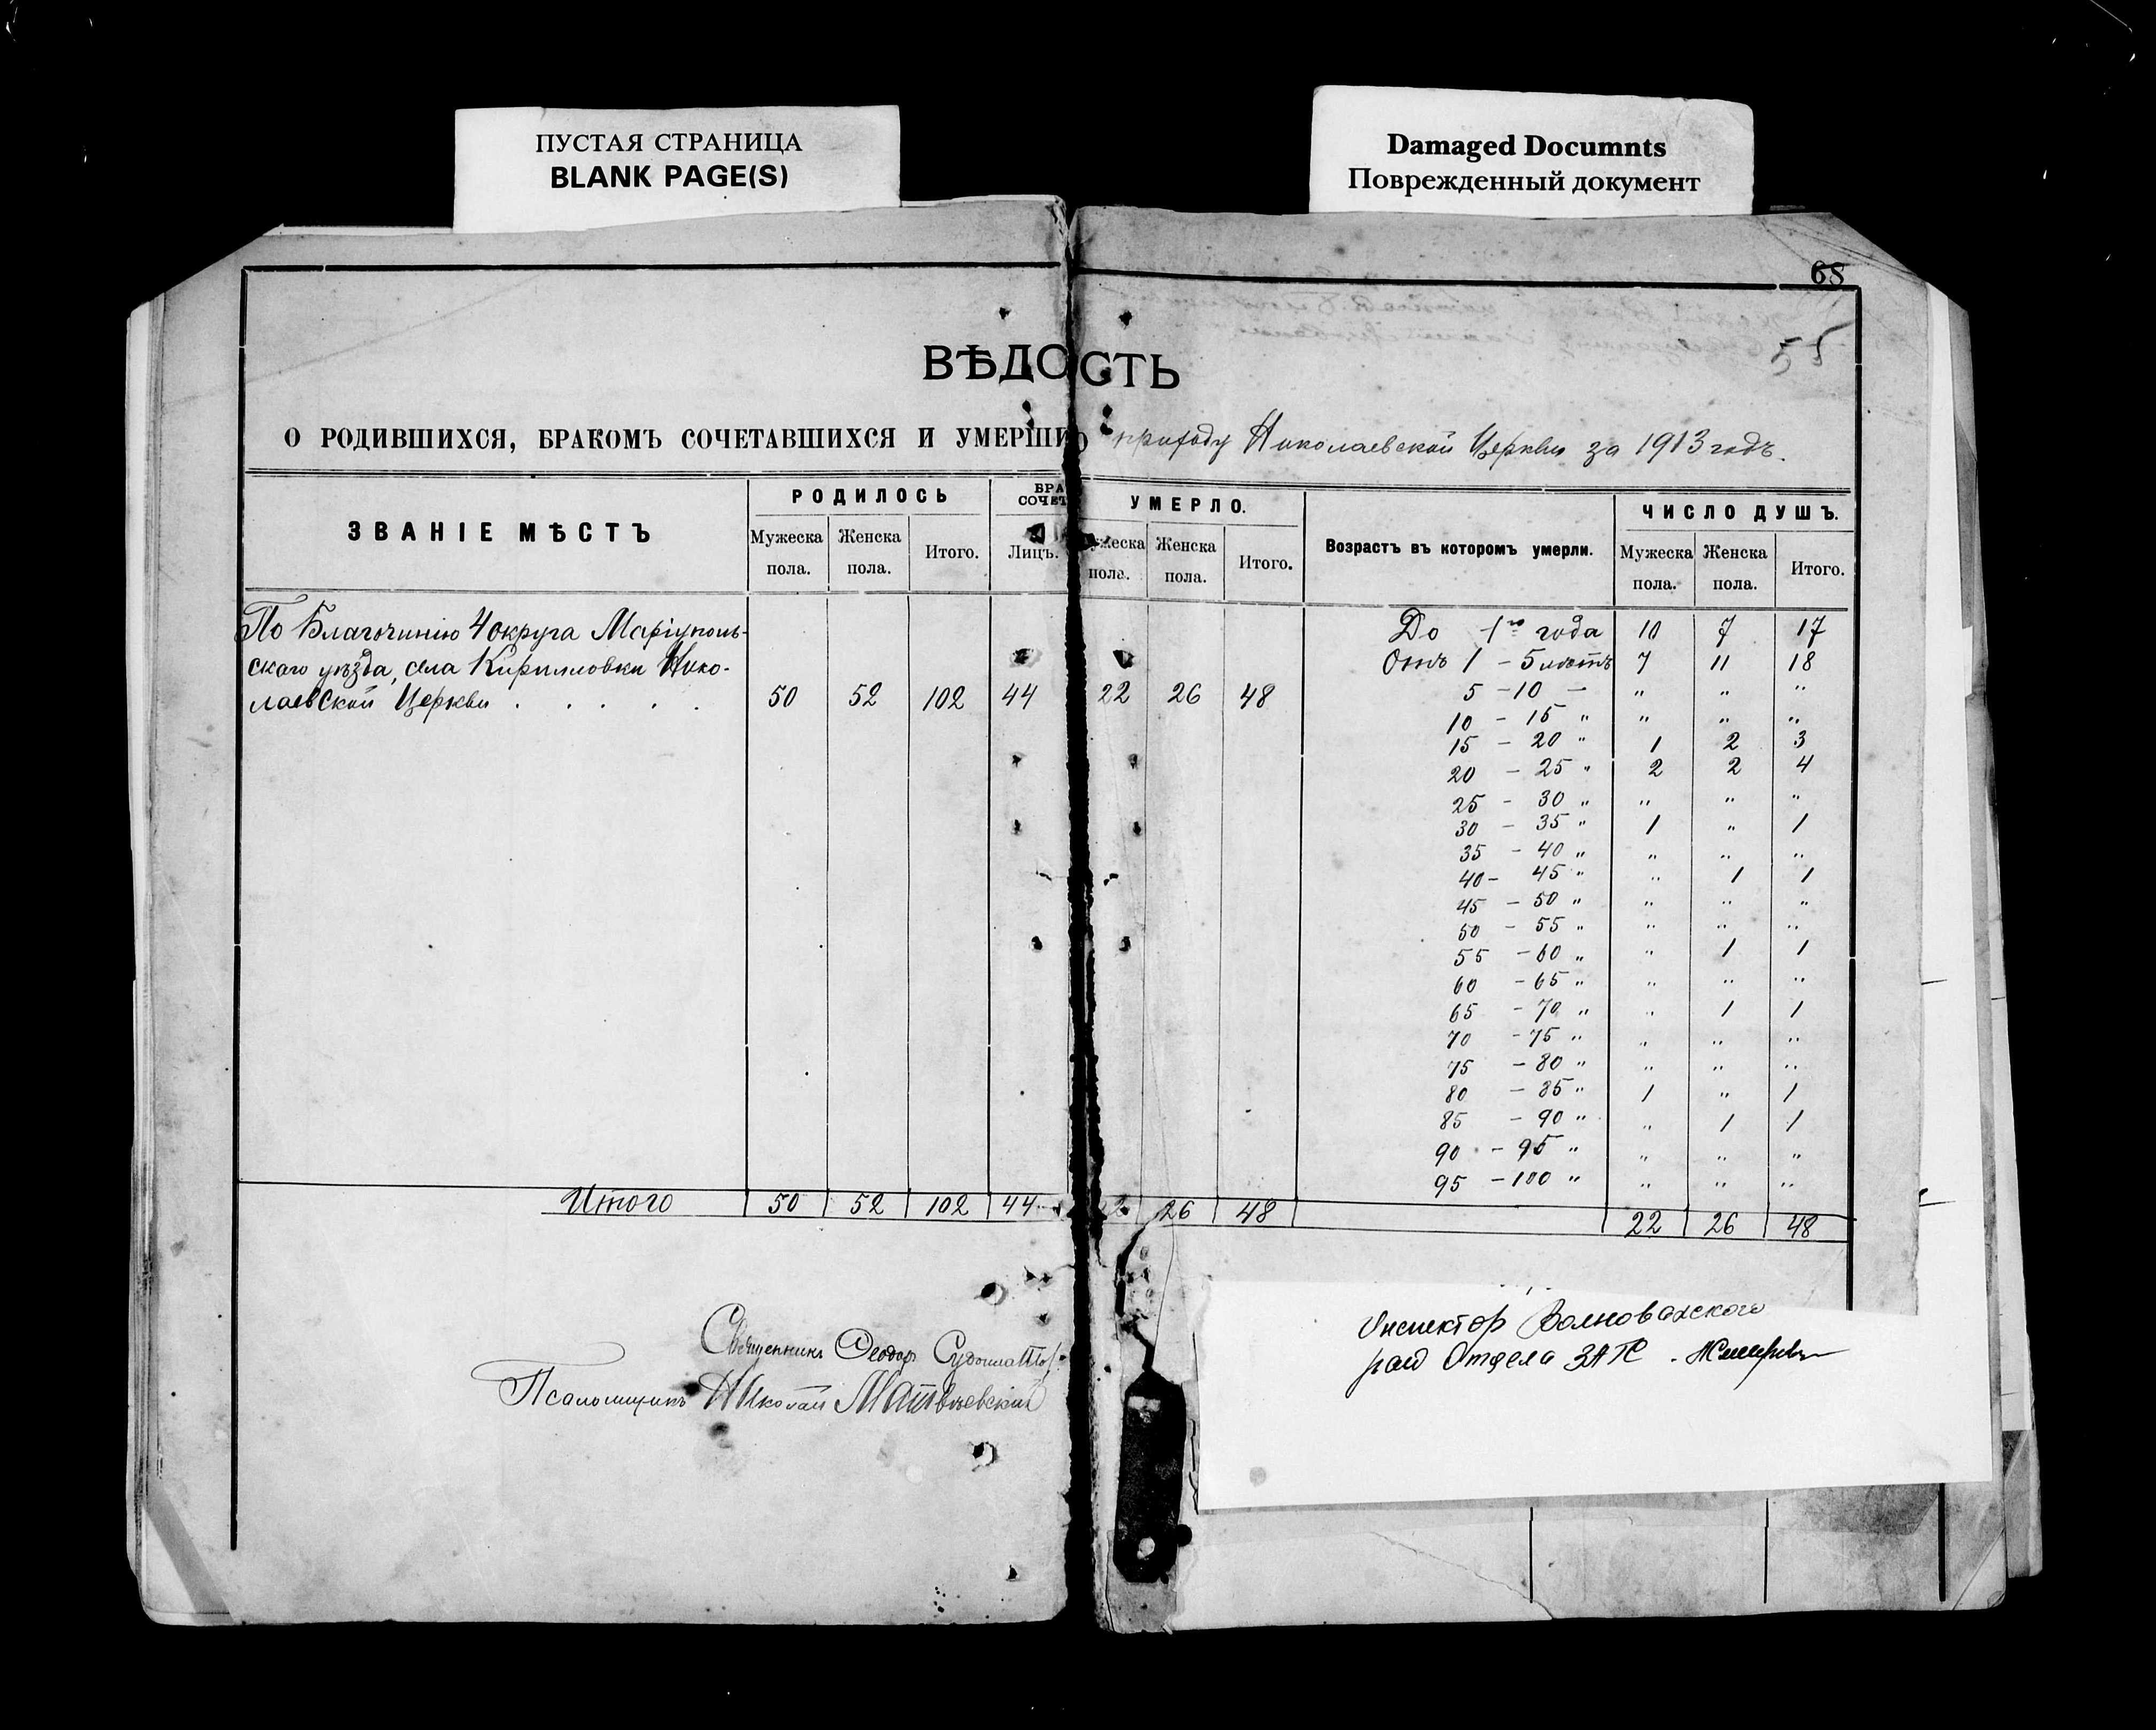 ПУСТАЯ СТРАНИЦА
BLANK PAGE(S)
Damaged Documnts
Поврежденный документ
68
55
ВѢДОСТЬ
О РОДИВШИХСЯ, БРАКОМЪ СОЧЕТАВШИХСЯ И УМЕРШИ приходу Николаевской Церкви за 1913 годъ.
ЗВАНІЕ МѢСТЪ РОДИЛОСЬ БРА СОЧЕТ УМЕРЛО. Возрастъ въ которомъ умерли. ЧИСЛО ДУШЪ.
Мужеска пола. Женска пола. Итого. Лицъ. ужеска пола. Женска пола. Итого. Мужеска пола. Женска пола. Итого.
По Благочинію 4 округа Маріуполь-
скаго уѣзда, села Кирилловки Нико-
лаевской Церкви . . . . . 50 52 102 44 22 26 48
До 1го года 10 7 17
Отъ 1 – 5 лѣтъ 7 11 18
5 – 10 – " " "
10 – 15 " " " "
15 – 20 " 1 2 3
20 – 25 " 2 2 4
25 – 30 " " " "
30 – 35 " 1 " 1
35 – 40 " " " "
40 – 45 " " 1 1
45 – 50 " " " "
50 – 55 " " " "
55 – 60 " " 1 1
60 – 65 " " " "
65 – 70 " " 1 1
70 – 75 " " " "
75 – 80 " " " "
80 – 85 " 1 " 1
85 – 90 " " 1 1
90 – 95 " " " "
95 – 100 " " " "
Итого 50 52 102 44 2 26 48 22 26 48
Священникъ Ѳеодоръ
Псаломщикъ Николай Матвѣевскій
Инспектор Волновахского
рай Отдела ЗАГС